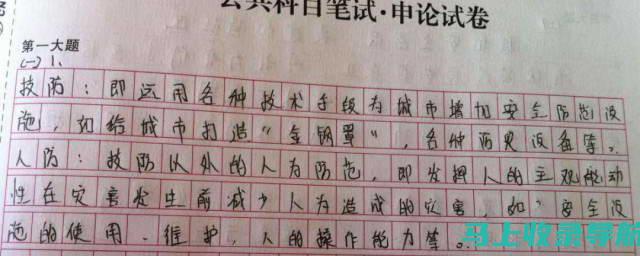 公共科目笔试·申论试卷
第一大题
(一) 1、
技防：即运用各种技术手段为城市增加安全防范设
施，如给城市打造“金钢罩”，各种预见设备等。
人防：技防以外的人为防范，即发挥人的主观能动
性在灾害发生前减少人为造成的灾害，如“安全设
施的使用、维护，人的操作能力等。
马上收录导航